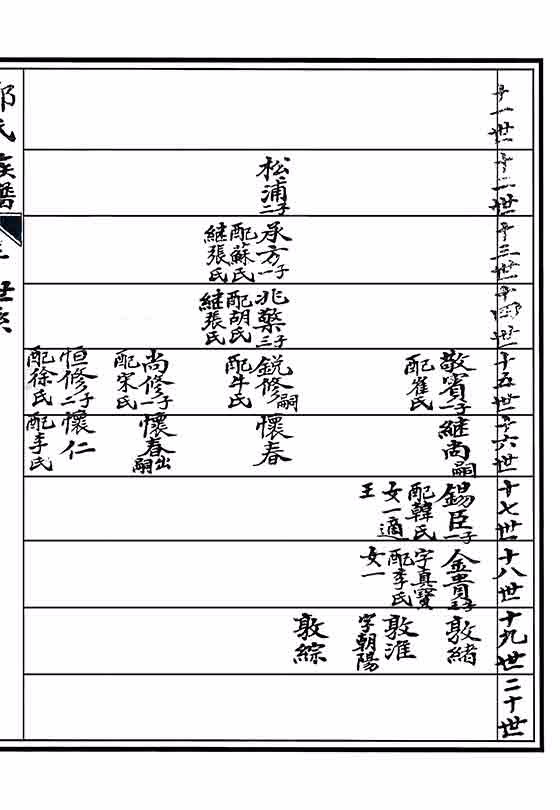 十一世
十二世
松浦 二子
十三世
承方 一子
配蘇氏
継張氏
十四世
兆蘂 三子
配胡氏
継張氏
十五世
敬賓 一子
配崔氏
鋭修 嗣
配牛氏
尚修 一子
配宋氏
恒修 二子
配徐氏
十六世
継尚 嗣
懷春
懷春 出嗣
懷仁
配李氏
十七世
錫臣 一子
配韓氏
女一適
王
十八世
金貴 三子
字真寶
配李氏
女一
十九世
敦緒
敦淮
字朝陽
敦綜
二十世
氏族譜
世系